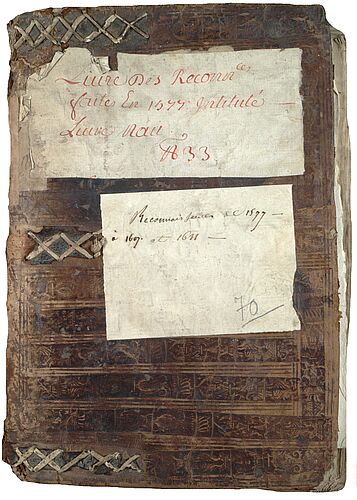 Livre Des Reconn^ces
faite En 1577 Intitulé —
Livre
A33
Reconnaissances de 1577 —
à 1607. et 1611 —
70